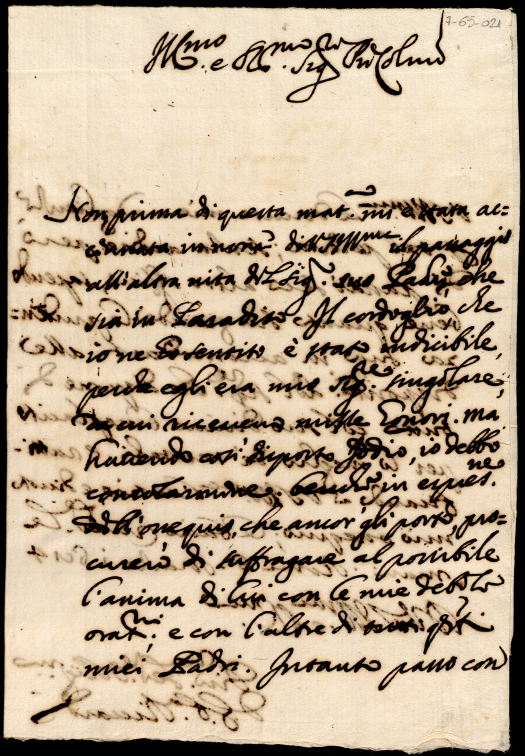 7-65-021
Ill.mo e R.mo Sig.re P.ron Col.mo
Non prima di questa mat.na mi è stata ac=
cennata in nome di V.S. Ill.ma il passaggio
all'altra vita del Sig.r suo Padre, che
sia in Paradiso. Il cordoglio, che
io ne ho sentito è stato indicibile,
perche egli era mio Sig.re singolare,
da cui ricevevo mille honori. ma
havendo così disposto Iddio, io debbo
consolarmene. bensì in espres.ne
dell'ossequio, che ancor gli porto, pro-
curerò di suffragare al possibile
l'anima di lui con le mie deboli
orat.ni, e con l'altre di tutti q.sti
miei Padri. Intanto passo con